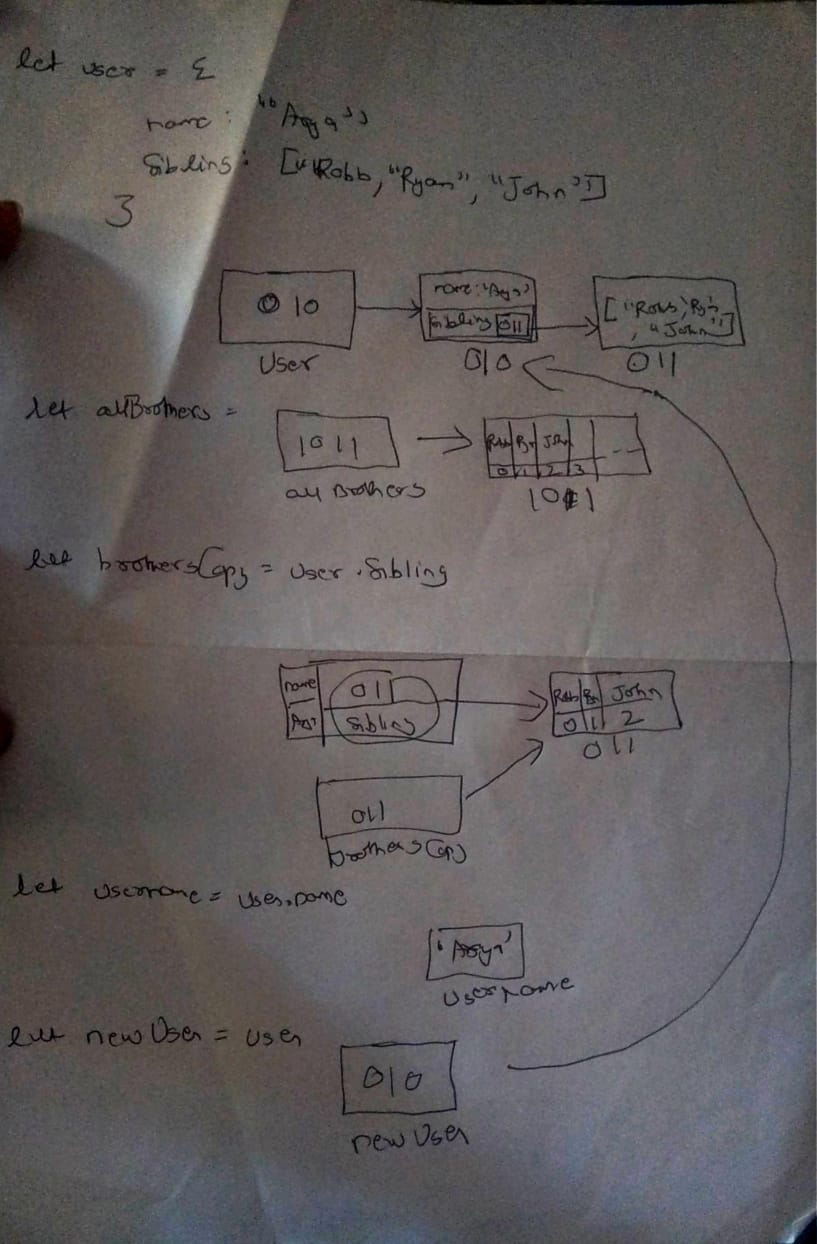 let user = {
name: "Arya"
Siblins: ["Robb, "Ryan", "John"]
}
010
name: 'Arya'
Sibling 011
["Robb, Ryn, "John"]
User
010
011
let allBrothers =
1011
Robb Ryn John
0 1 2 3
all Brothers
1011
let brothersCopy = User.Sibling
name 011
Arya Sibling
Robb Ryn John
0 1 2
011
011
brothersCopy
let username = user.name
'Arya'
username
let newUser = user
010
newUser